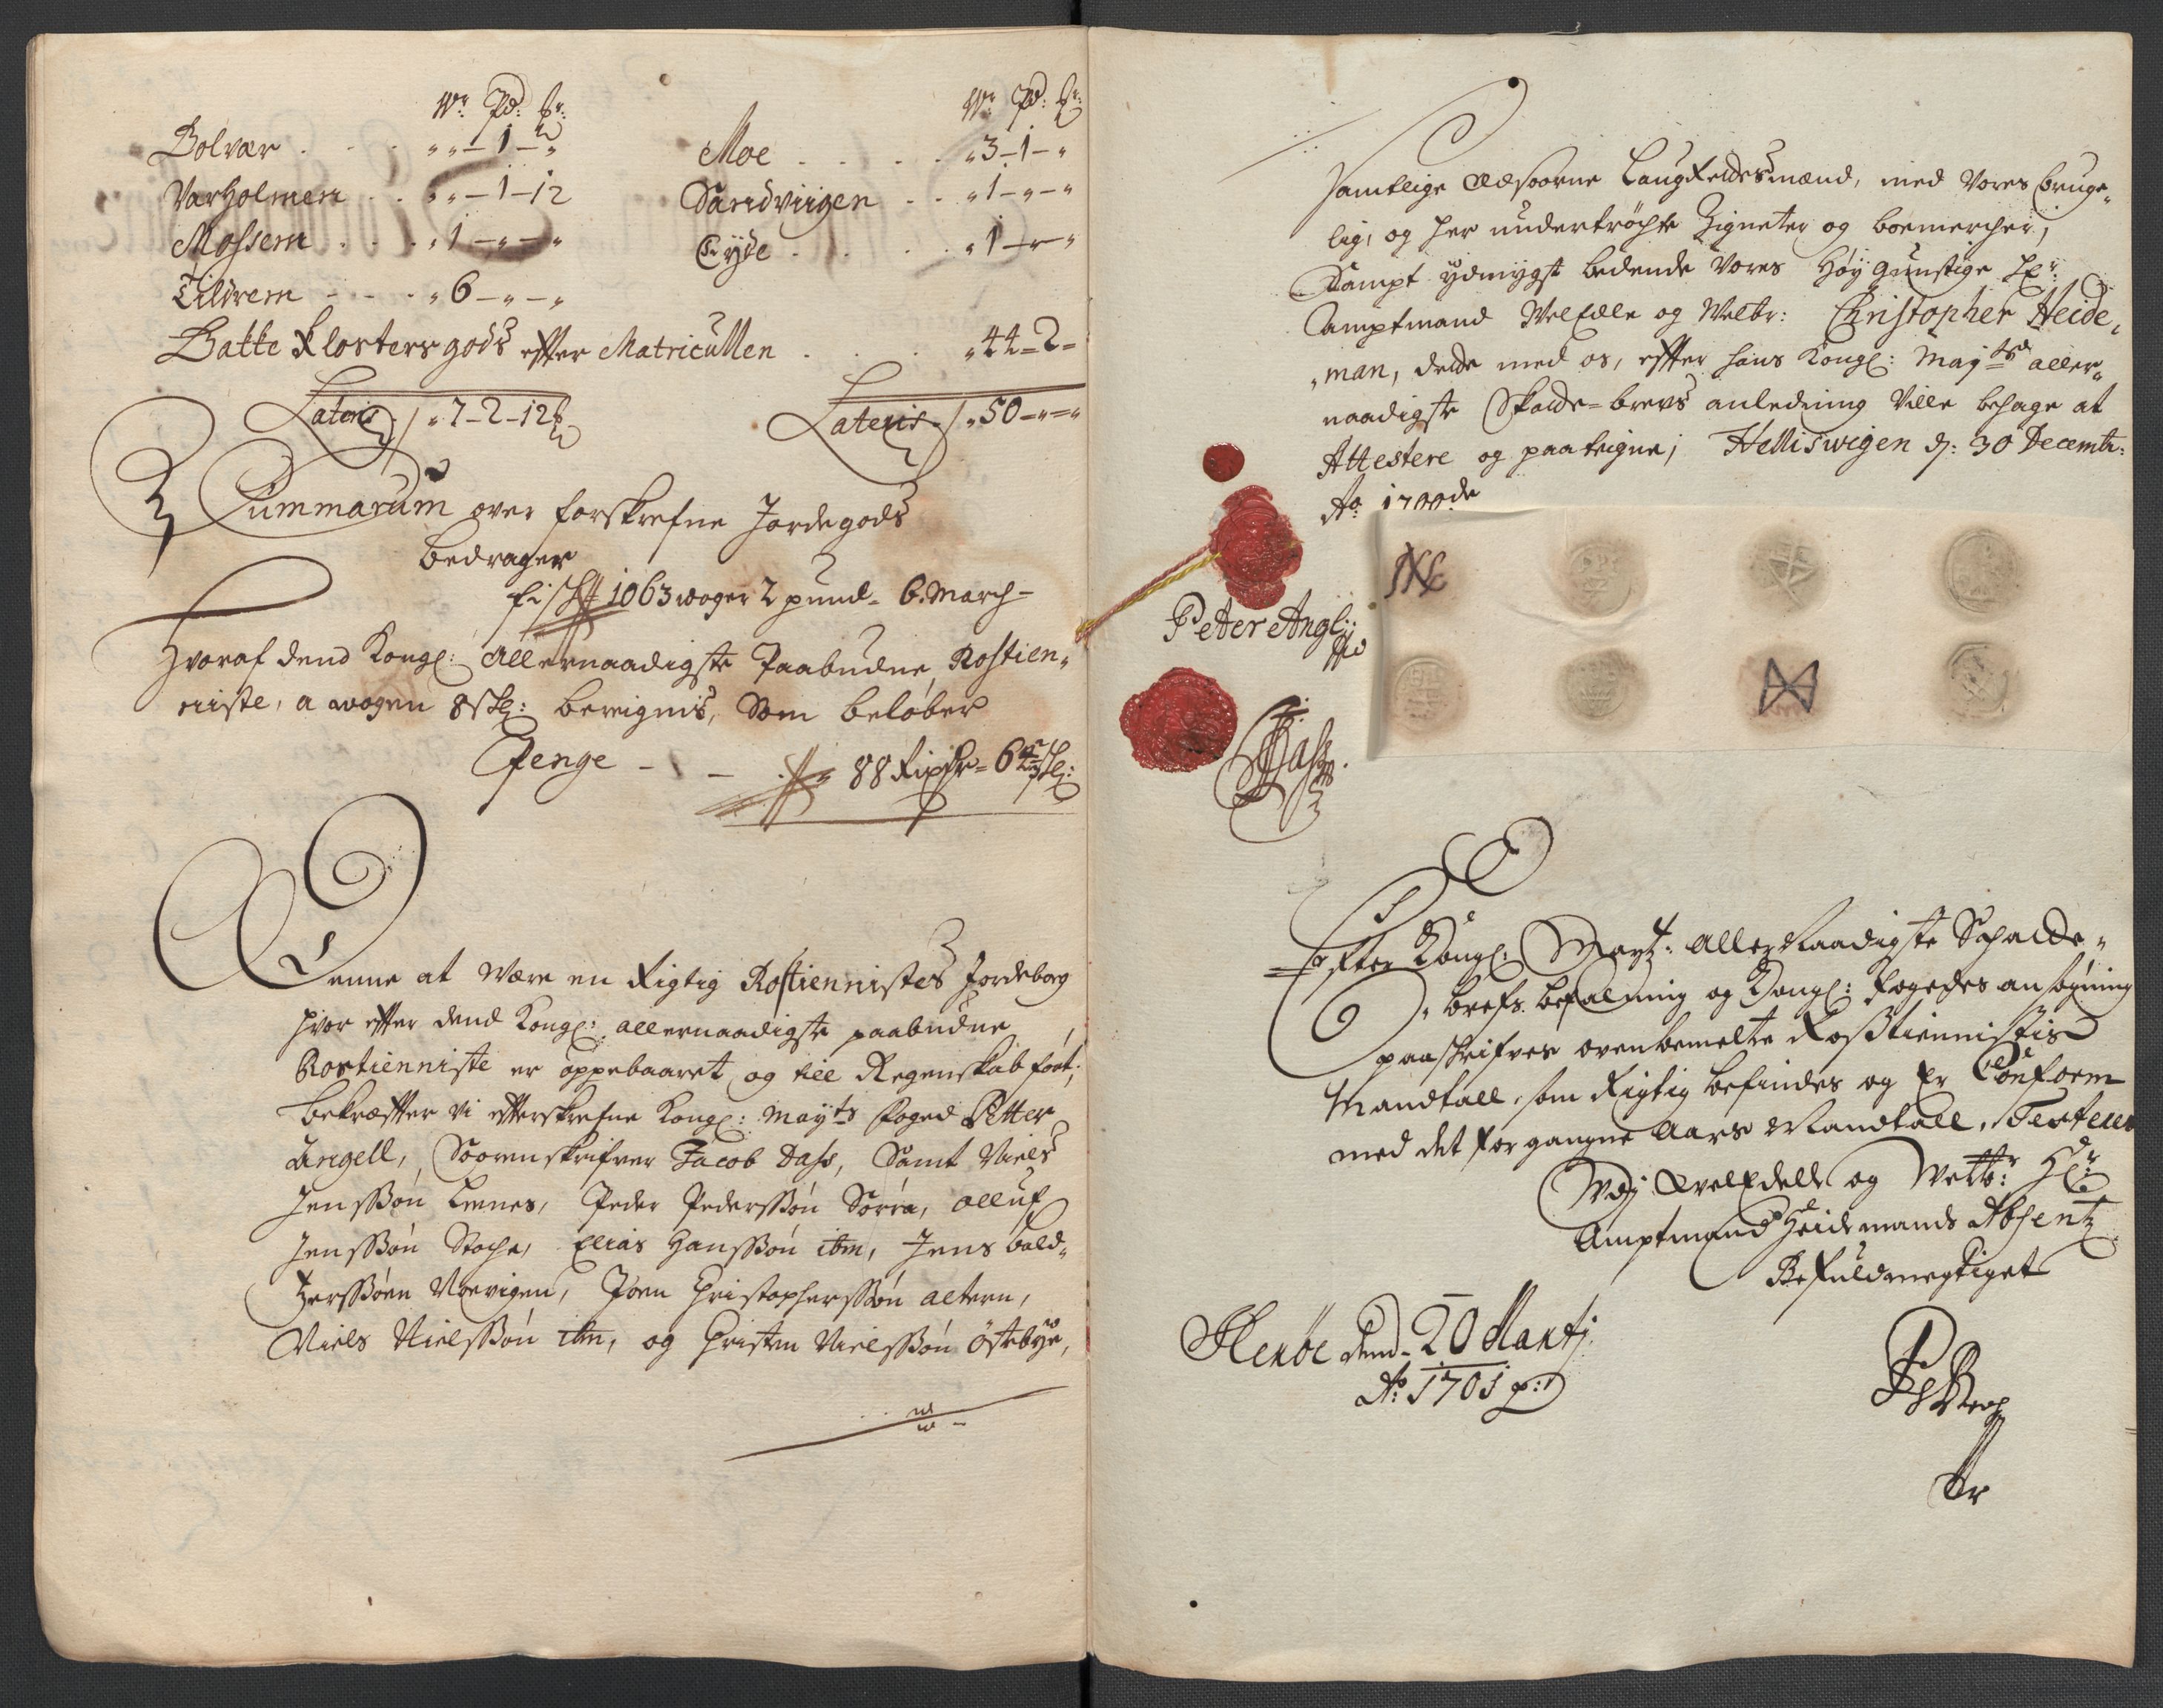 Wr Pd: Mr:
Bolvær . . . „ „ – 1 – „
Varholmen . . „ „ – 1 – 12
Mossem . . . „ 1 – „ – „
Tilrem – – – „ 6 – „ – „
Wr Pd: Mr:
Moe . . . . „ 3 – 1 – „
Sandviigen . . „ 1 – „ – „
Eyde . . . . „ 1 – „ – „
Bakke Klosters gods efter Matricullen . . . „ 44 – 2 –
Lateris „ 7 – 2 – 12
Lateris „ 50 – „ – „
Summarum over forskrefne Jordegods
bedrager
fisch 1063 woger 2 pund – 6. March –
Hvoraf dend Kongl: Allernaadigste Paabudne Rostien„
niste, a wogen 8 sk: bereignis, Som beløber
Penge – – – 88 Rixdr = 6 sk:
Denne at være en Rigtig Rostiennistes Jordebog
hvor efter dend Kongl: allernaadigste paabudne
Rostienniste er oppebaaret og till Regenskab ført,
bekræfter vi efterskrefne Kongl: Mayts Foged Petter
Angell, Soorenskrifver Jacob Dass, Samt Niels
Jenssøn Lennes, Peder Pederssøn Sørra, Olluf
Jenssøn Stoche, Elias Hanssøn ibm, Jens bald„
tzerssøn Norvigen, Joen Christopherssøn altern,
Niels Nielssøn ibm, og Christen Nielssøn Østebye,
Samtlige Edsoorne Laugrettesmænd, med vores bruge„
lig, og her undertrøchte Zigneter og boemercher,
Sampt ydmygst bedende vores Høy gunstige Hr:
Amptmand Weledle og Welbr: Christopher Heide„
„man, dette med os, efter hans Kongl: Mayts aller„
naadigste Skatte=brevs anledning ville behage at
Attestere og paateigne, Helliswigen d: 30 Decembr:
Ao 1700de
Peter Angell
JDass
Efter Kongl: Mayt: Aller Naadigste Schatte„
„brefs befalning og Kongl: fogedes ansøgning
paaschrifves ovenbemelte Rosstiennistis
Mandtall, som Rigtig befindes og Er Conform
med det forgangne Aars Mandtall, Testerer
Udj Welædell og Welb: Hr:
Amptmand Heidemands Absentz
Befuldmegtiget
Ao: 1701